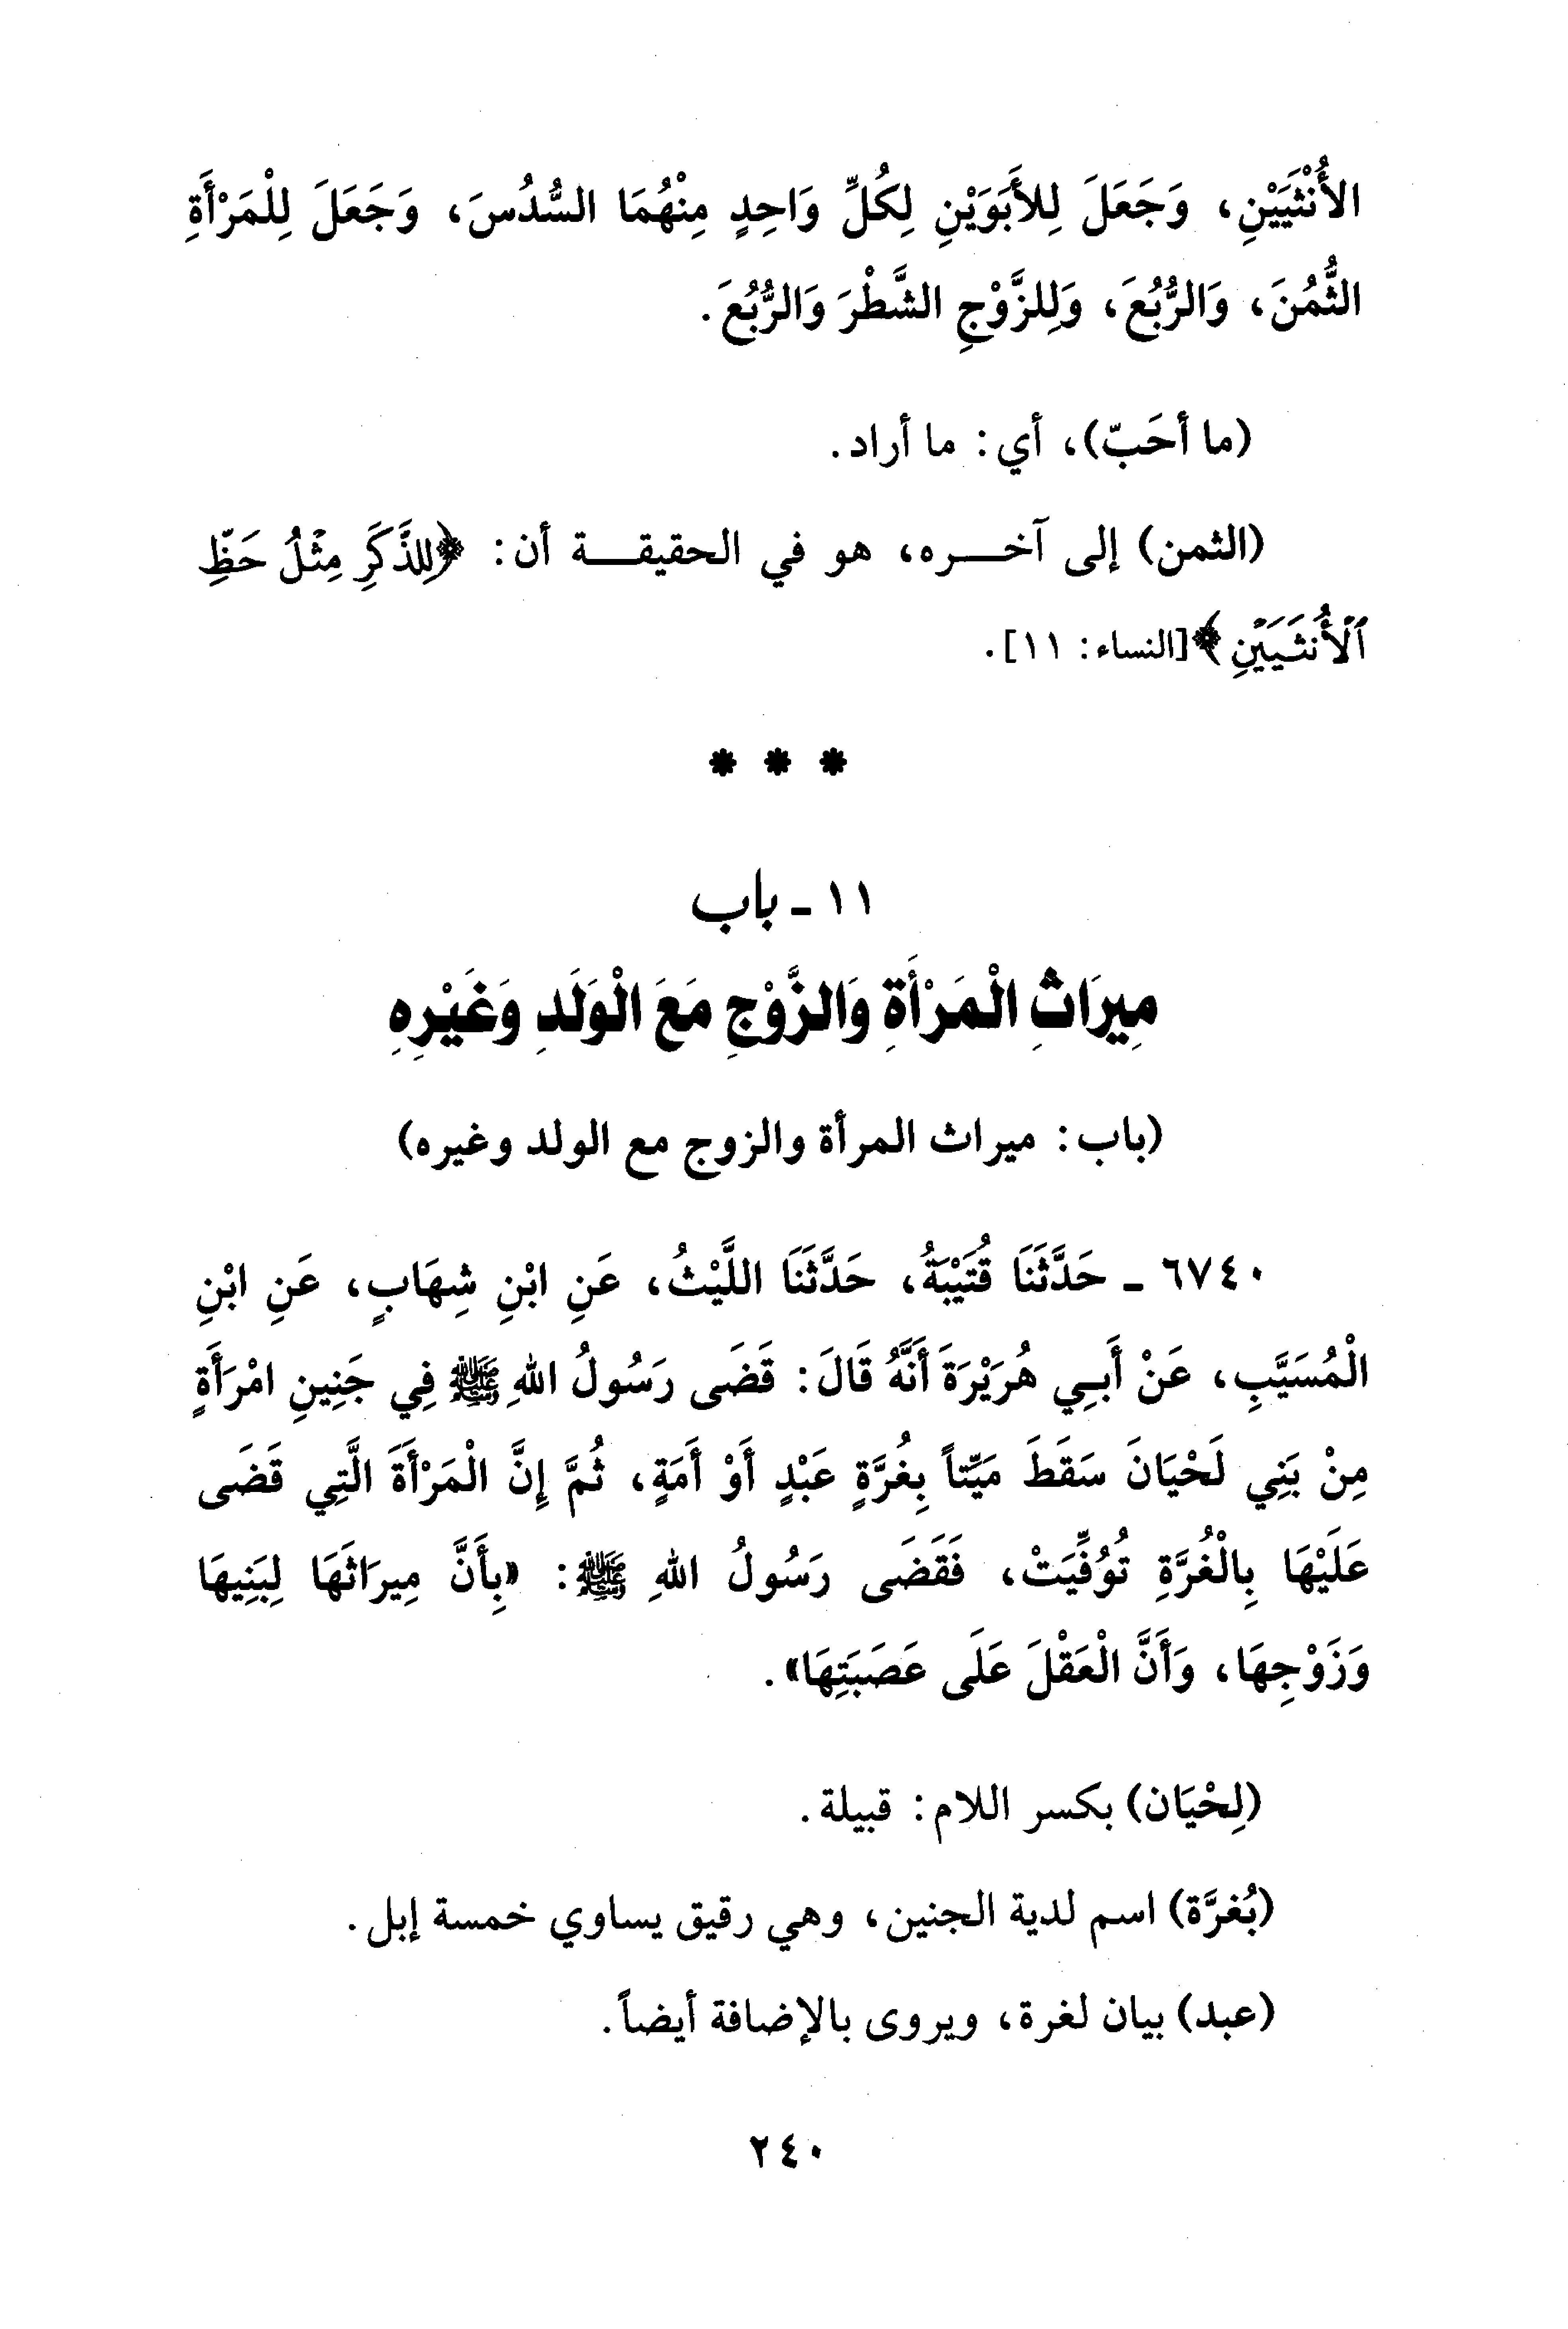 الأُنْثَيَيْنِ، وَجَعَلَ لِلأَبَوَيْنِ لِكُلِّ وَاحِدٍ مِنْهُمَا السُّدُسَ، وَجَعَلَ لِلْمَرْأَةِ
الثُّمُنَ، وَالرُّبُعَ، وَلِلزَّوْجِ الشَّطْرَ وَالرُّبُعَ.
(ما أحَبّ)، أي: ما أراد.
(الثمن) إلى آخره، هو في الحقيقة أن: ﴿لِلذَّكَرِ مِثْلُ حَظِّ
ٱلْأُنثَيَيْنِ﴾[النساء: ١١].
* * *
١١ - باب
مِيرَاثِ الْمَرْأَةِ وَالزَّوْجِ مَعَ الْوَلَدِ وَغَيْرِهِ
(باب: ميراث المرأة والزوج مع الولد وغيره)
٦٧٤٠ - حَدَّثَنَا قُتَيْبَةُ، حَدَّثَنَا اللَّيْثُ، عَنِ ابْنِ شِهَابٍ، عَنِ ابْنِ
الْمُسَيَّبِ، عَنْ أَبِي هُرَيْرَةَ أَنَّهُ قَالَ: قَضَى رَسُولُ اللهِ ﷺ فِي جَنِينِ امْرَأَةٍ
مِنْ بَنِي لَحْيَانَ سَقَطَ مَيِّتاً بِغُرَّةٍ عَبْدٍ أَوْ أَمَةٍ، ثُمَّ إِنَّ الْمَرْأَةَ الَّتِي قَضَى
عَلَيْهَا بِالْغُرَّةِ تُوُفِّيَتْ، فَقَضَى رَسُولُ اللهِ ﷺ: «بِأَنَّ مِيرَاثَهَا لِبَنِيهَا
وَزَوْجِهَا، وَأَنَّ الْعَقْلَ عَلَى عَصَبَتِهَا».
(لِحْيَان) بكسر اللام: قبيلة.
(بُغرَّة) اسم لدية الجنين، وهي رقيق يساوي خمسة إبل.
(عبد) بيان لغرة، ويروى بالإضافة أيضاً.
٢٤٠